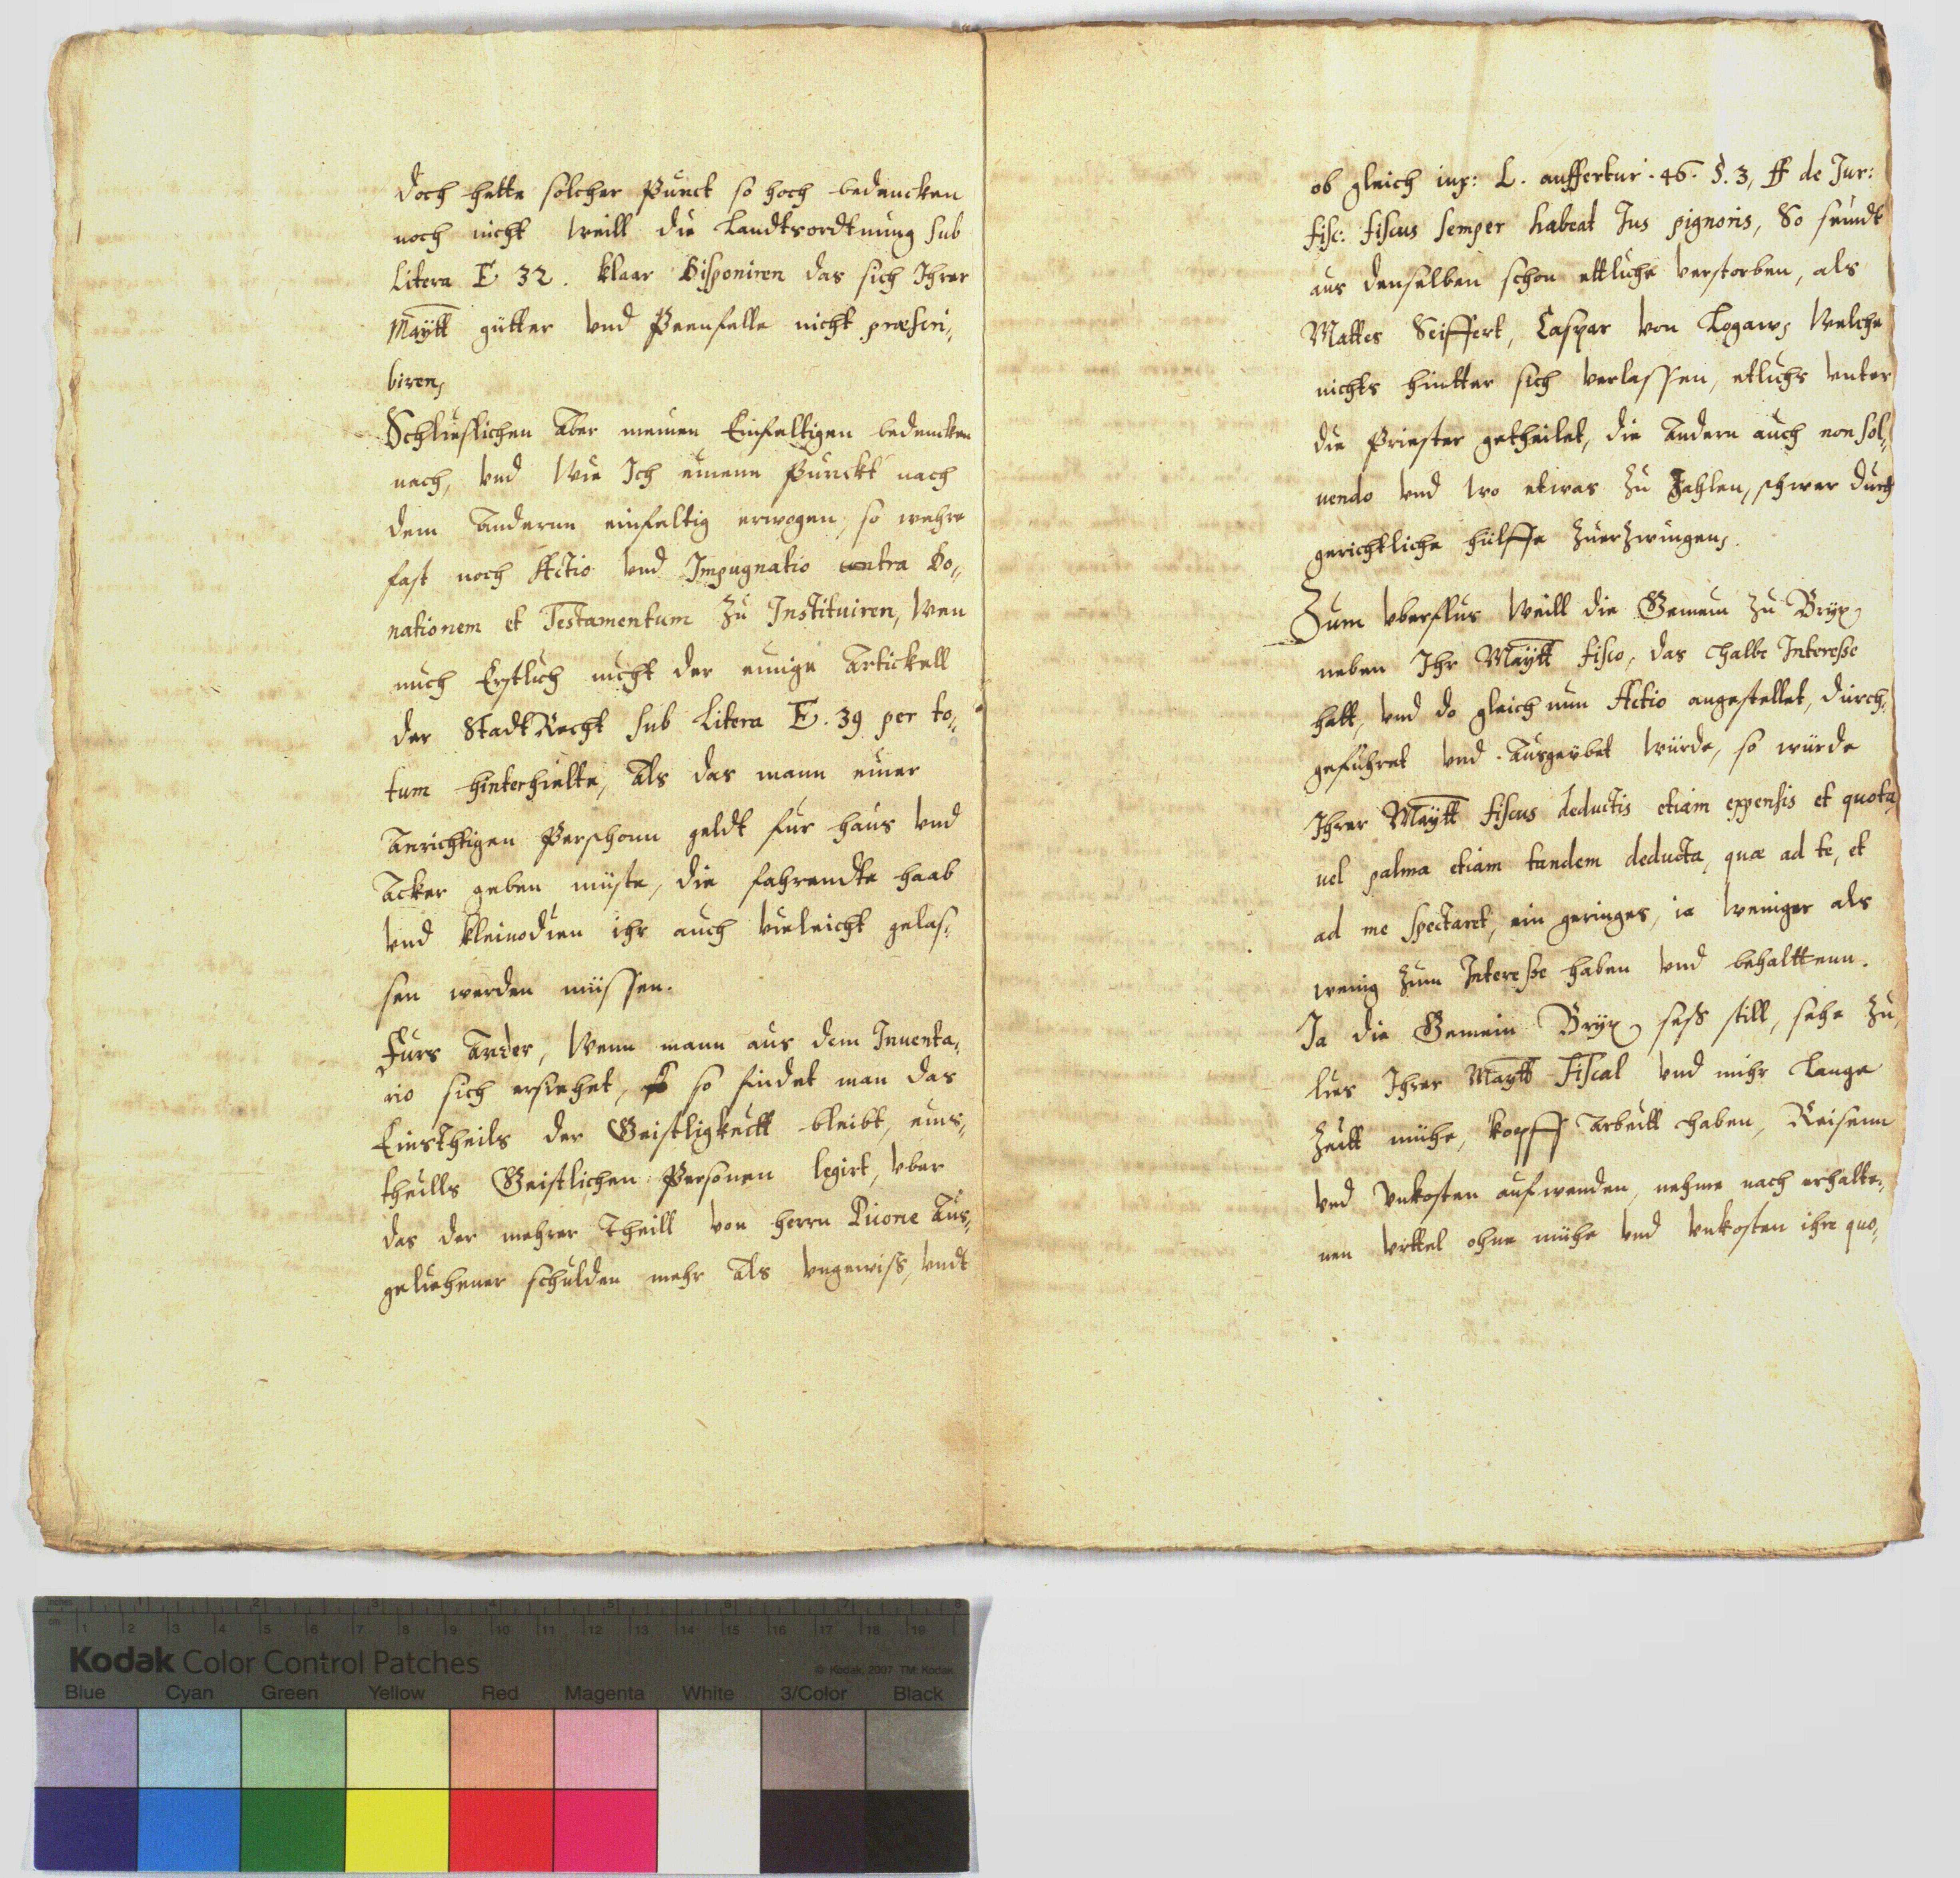 doch hette solcher Punct so hoch bedencken
noch nicht weill die Landtsordtnung sub
litera E 32. klaar disponiren das sich Ihrer
Maÿtt gütter vnd Peenfelle nicht præscri,
biren,
Schlieslichen Aber meinen Einfeltigen bedencken
nach, vnd Wie Ich einenn Punckt nach
dem Andernn einfeltig erwogen, so wehre
fast noch Actio vnd Impugnatio contra Do,,
nationem et Testamentum zu Instituiren, Wen
mich Erstlich nicht der einige Artickell
der StadtRecht sub Litera E. 39 per to,,
tum hinterhielte, Als das mann einer
Anrichtigen Perschonn geldt für haus vnd
Acker geben müste, die fahrendte haab
vnd kleinodien ihr auch vieleicht gelas,
sen werden müssen.
Fürs Ander, Wenn mann aus dem Inuenta,
rio sich ersiehet, so findet man das
Einstheils der Geistligkeitt bleibt, eins,
theills Geistlichen Personen legirt, vber
das der mehrer Theill von herrn Aus,
geliehener schulden mehr Als vngewiß, vndt
ob gleich iux: L. auffertur. 46. §. 3, ff de Jur:
fisc: fiscus semper habeat Ius pignoris, So seindt
aus denselben schon ettliche verstorben, als
Mattes Seiffert, Caspar von Logaw, Welche
nichts hintter sich verlassen, etlichs vnter
die Priester getheilet, die Andern auch non sol,,
uendo vnd wo etwas zu Zahlen, schwer durch
gerichtliche hülffe zuerzwingen,.
Zum vberflus Weill die Gemein zu Bryx
neben Ihr Maÿtt fisco, das halbe Interesse
hatt, vnd do gleich nun Actio angestellet, durch,
geführet vnd Ausgeübet würde, so würde
Ihrer Maÿtt fiscus deductis etiam expensis et quota
uel palma etiam tandem deducta, quæ ad te, et
ad me spectaret, ein geringes, ia weniger als
wenig zum Interesse haben vnd behalttenn.
Ja die Gemein Bryx saß still, sehe zu,
lies Ihrer Maytt Fiscal vnd mihr Lange
Zeitt mühe, kopff Arbeitt haben, Reisenn
vnd Vnkosten aufwenden, nehme nach erhalte,,
nen vrttel ohne mühe vnd vnkosten ihre quo,
Kodak Color Control Patches
© Kodak, 2007 TM: Kodak
Blue Cyan Green Yellow Red Magenta White 3/Color Black